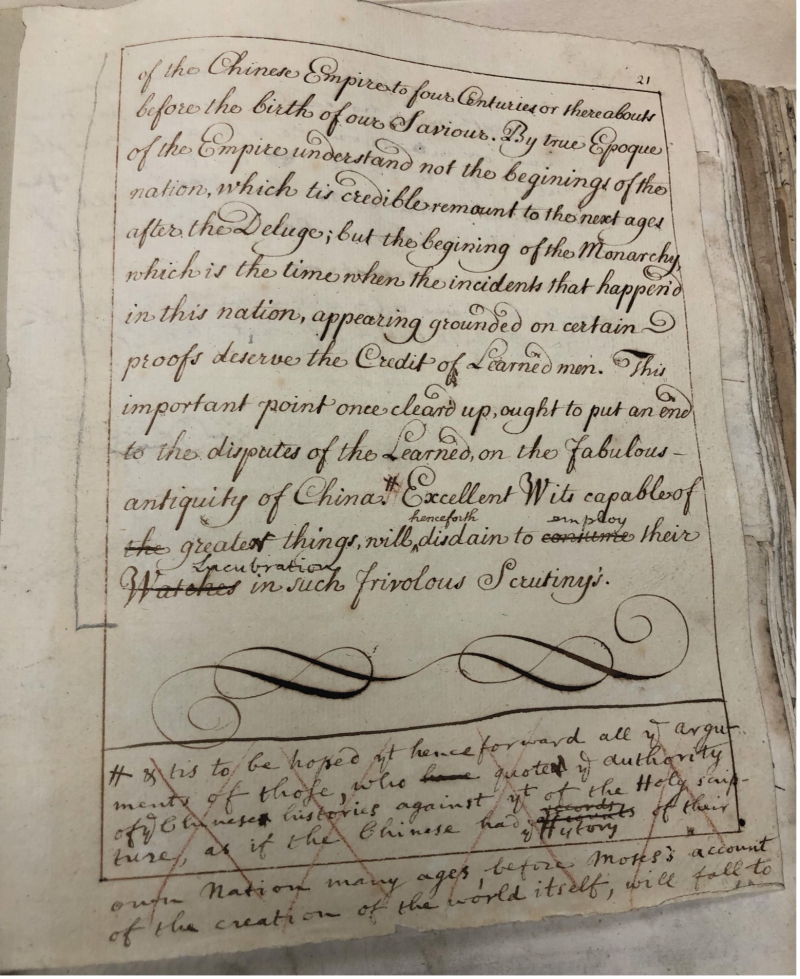 21
of the Chinese Empire to four Centuries or thereabouts
before the birth of our Saviour. By true Epoque
of the Empire understand not the beginings of the
nation, which tis credible remount to the next ages
after the Deluge; but the begining of the Monarchy,
which is the time when the incidents that happen'd
in this nation, appearing grounded on certain
proofs deserve the Credit of Learned men. This
important point once clear'd up, ought to put an end
to the disputes of the Learned, on the fabulous-
antiquity of China.# Excellent Wits capable of
henceforth employ
the greater things, will, disdain to consume their
Lucubrations
Watches in such frivolous Scrutiny's.
# & tis to be hoped yt henceforward all ye argu-
ments of those, who have quoted ye authority
of ye Chinese histories against yt of the Holy scrip-
ture, as if the Chinese had records of their
ye History
own Nation many ages before Moses's account
of the creation of the world itself, will fall to